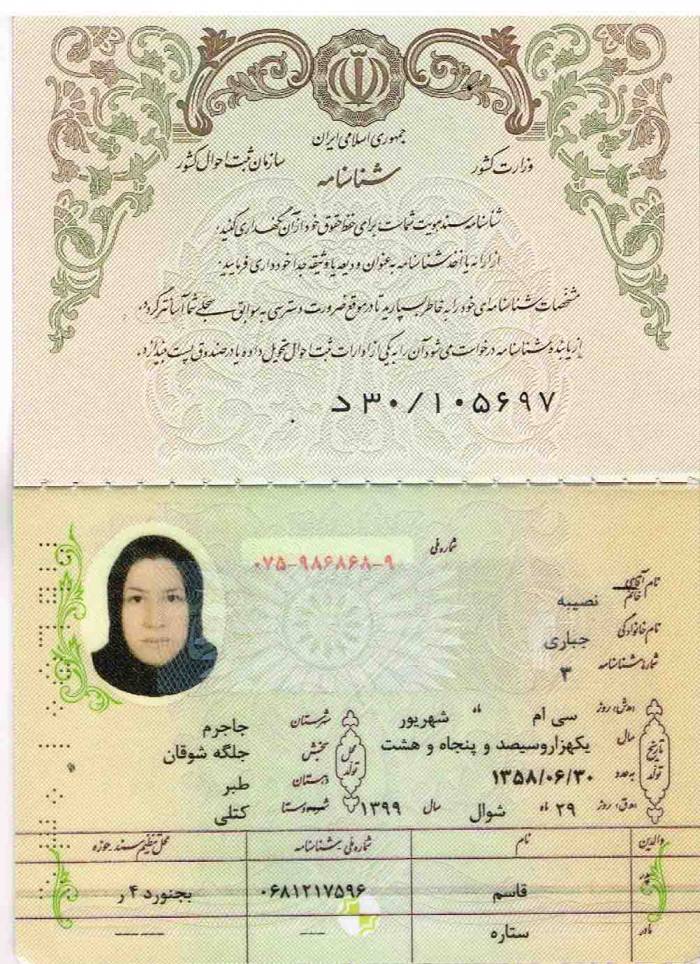 جمهوری اسلامی ایران
وزارت کشور
سازمان ثبت احوال کشور
شناسنامه
شناسنامه سند هویت شماست برای حفظ حقوق خود از آن نگهداری کنید.
از ارائه یا اخذ شناسنامه به عنوان ودیعه یا وثیقه جدا خودداری فرمایید.
مشخصات شناسنامه‌ای خود را به خاطر بسپارید تا در موقع ضرورت دسترسی به سوابق سجلی شما آسانتر گردد.
از یابنده شناسنامه درخواست می‌شود آن را به یکی از ادارات ثبت احوال تحویل داده یا در صندوق پست بیندازد.
د۳۰/۱۰۵۶۹۷
شماره ملی
۰۷۵-۹۸۶۸۶۸-۹
نام آقای خانم نصیبه
نام خانوادگی جباری
شماره شناسنامه ۳
تاریخ تولد
روز سی ام ماه شهریور
سال یکهزاروسیصد و پنجاه و هشت
به عدد ۱۳۵۸/۰۶/۳۰
روز ۲۹ ماه شوال سال ۱۳۹۹
محل تولد
شهرستان جاجرم
بخش جلگه شوقان
دهستان طبر
شهر روستا کتلی
والدین نام شماره ملی شناسنامه محل تنظیم سند حوزه
پدر قاسم ۰۶۸۱۲۱۷۵۹۶ بجنورد ۴ ر
مادر ستاره --- -----